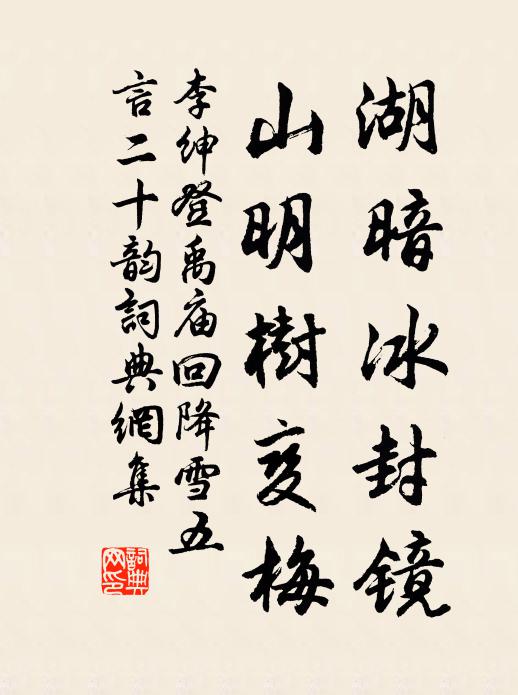 湖暗冰封镜
山明樹变梅
李绅登禹庙回降雪五
言二十韵詞典網集
詞典
网印